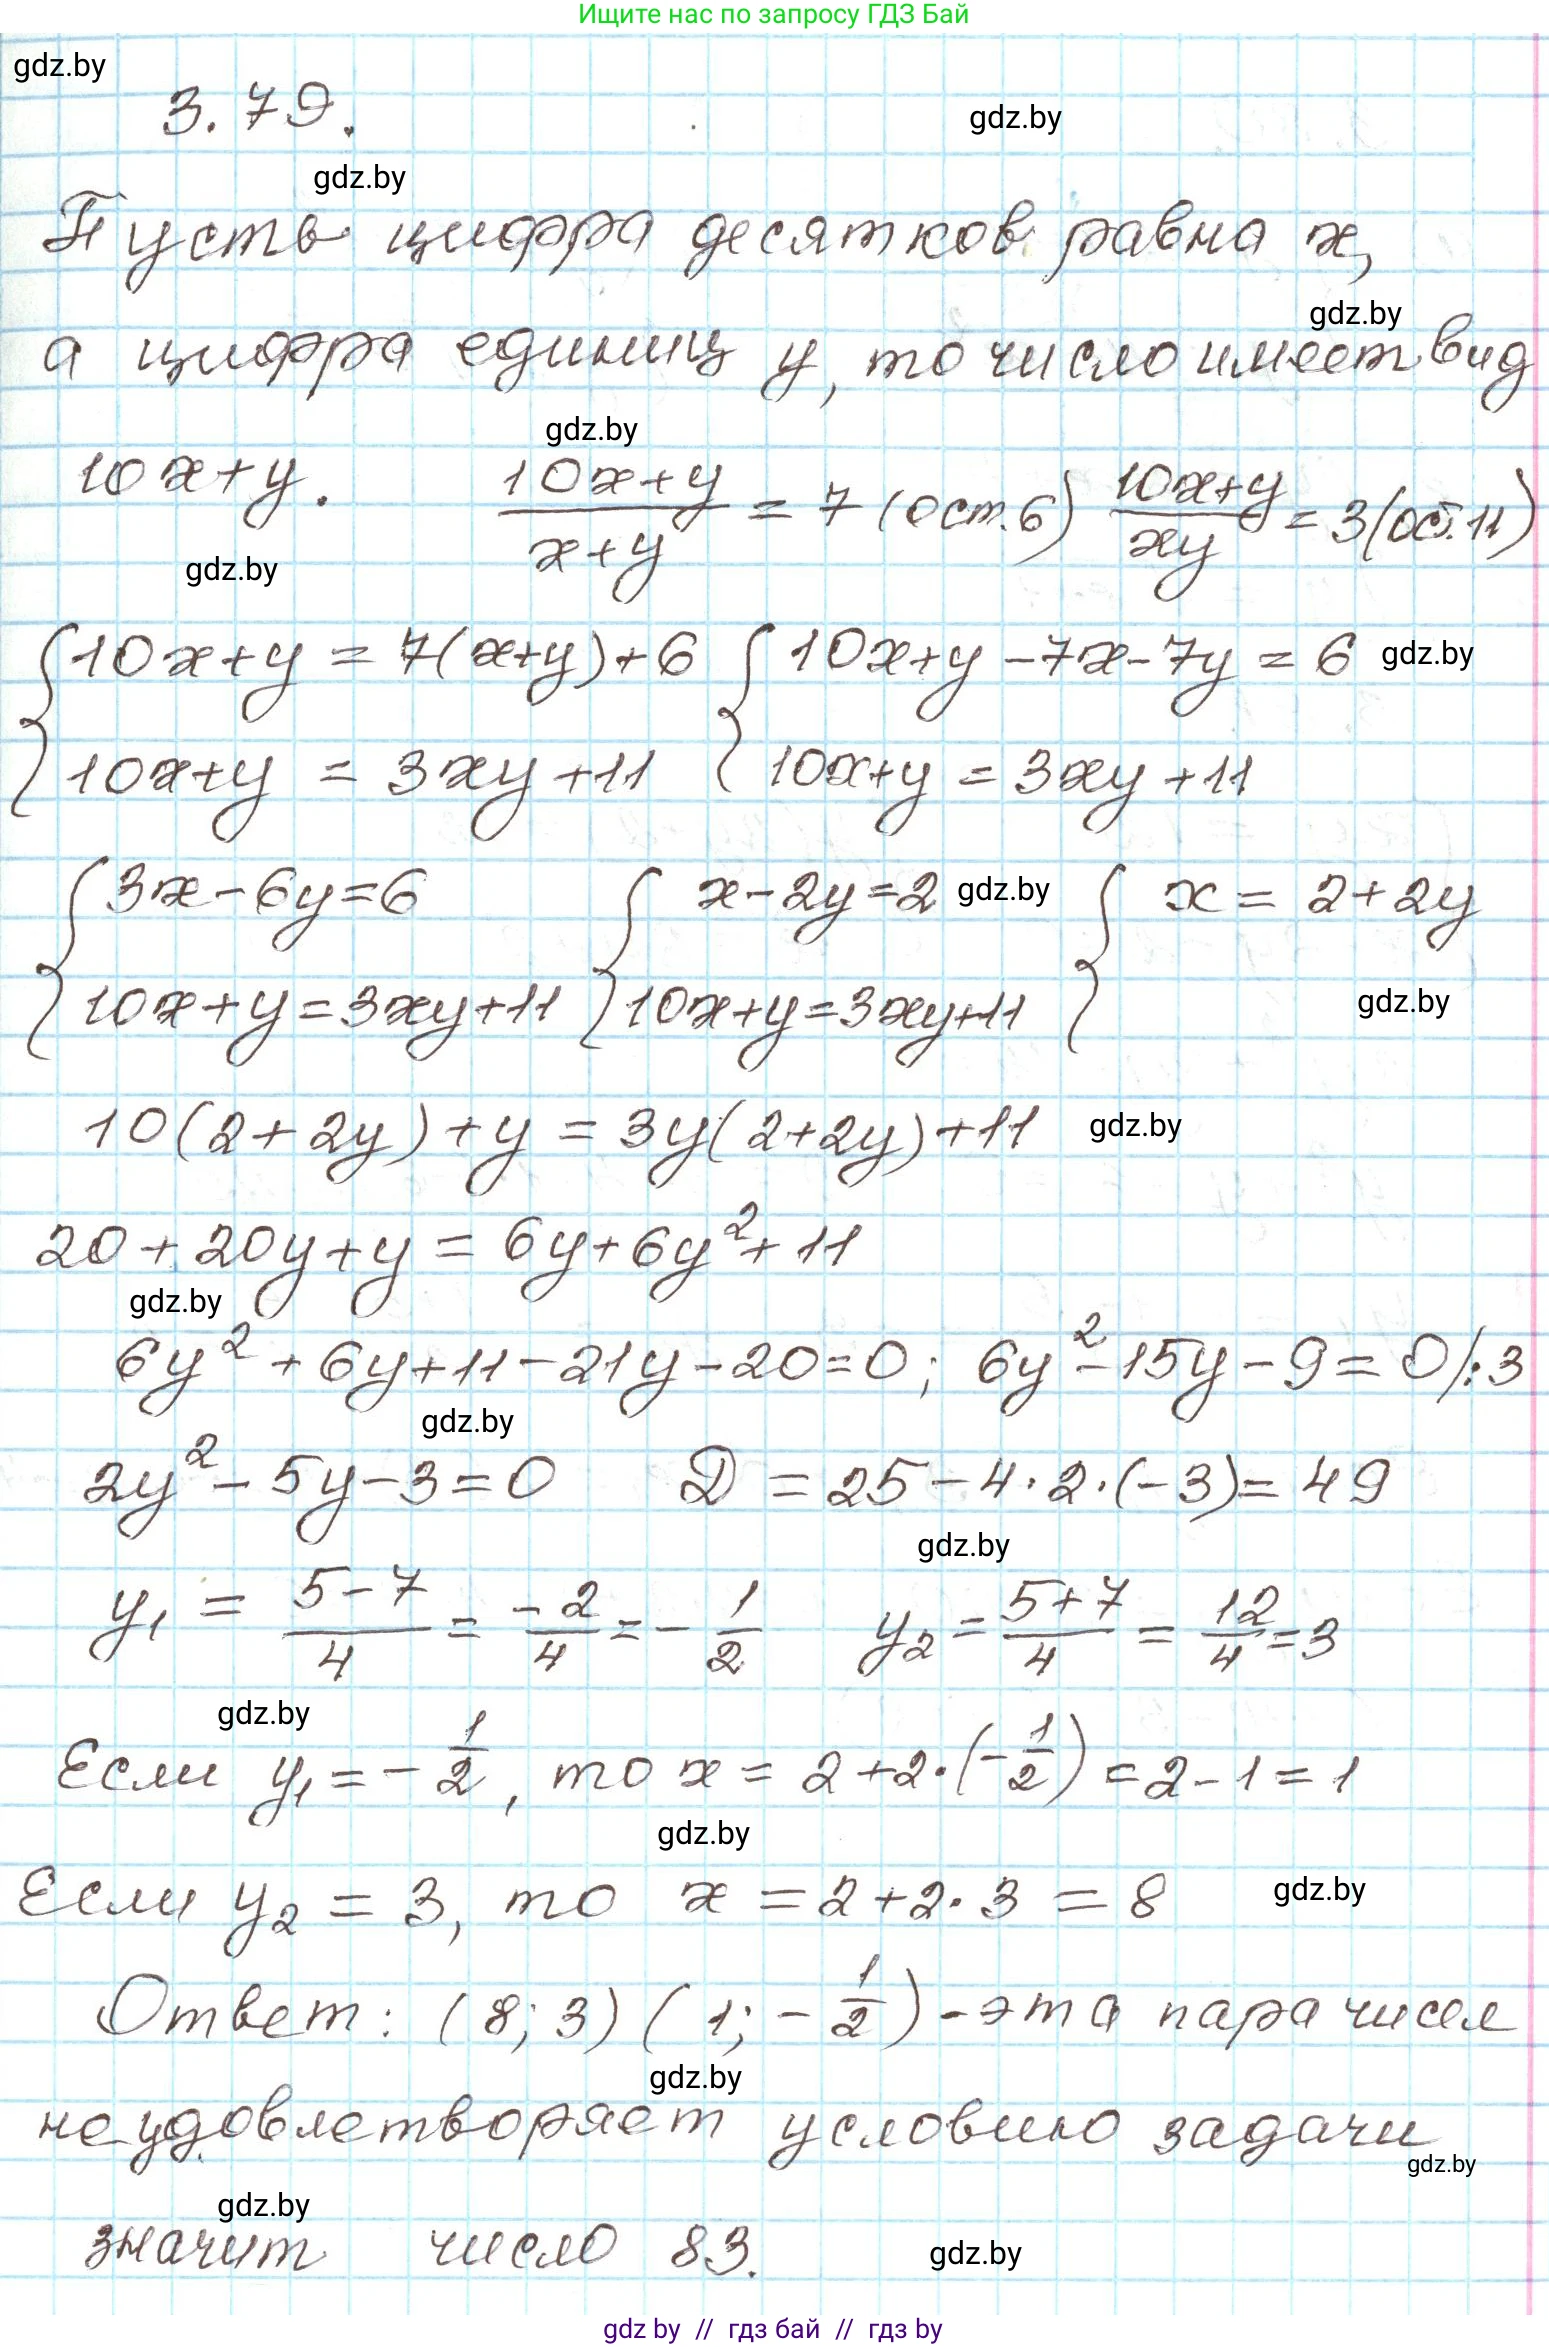 Ищите нас по запросу ГДЗ Бай
gdz.by
3.79.
gdz.by
gdz.by
Пусть цифра десятков равна x,
gdz.by
а цифра единиц y, то число имеет вид
gdz.by
10x+y. (10x+y)/(x+y) = 7 (ост.6) (10x+y)/(xy) = 3(ост.11)
gdz.by
{10x+y = 7(x+y)+6 {10x+y-7x-7y = 6 gdz.by
{10x+y = 3xy+11 {10x+y = 3xy+11
{3x-6y=6 {x-2y=2 gdz.by {x = 2+2y
{10x+y=3xy+11 {10x+y=3xy+11 { gdz.by
10(2+2y)+y = 3y(2+2y)+11 gdz.by
20+20y+y = 6y+6y²+11
gdz.by
6y²+6y+11-21y-20=0; 6y²-15y-9=0/:3
gdz.by
2y²-5y-3=0 D = 25-4·2·(-3)=49
gdz.by
y₁ = (5-7)/4 = -2/4 = -1/2 y₂ = (5+7)/4 = 12/4 = 3
gdz.by
Если y₁=-1/2, то x = 2+2·(-1/2) = 2-1 = 1
gdz.by
Если y₂ = 3, то x = 2+2·3 = 8 gdz.by
Ответ: (8;3) (1;-1/2) - эта пара чисел
gdz.by
не удовлетворяет условию задачи
gdz.by
gdz.by
значит число 83. gdz.by
gdz by // гдз бай // гдз by